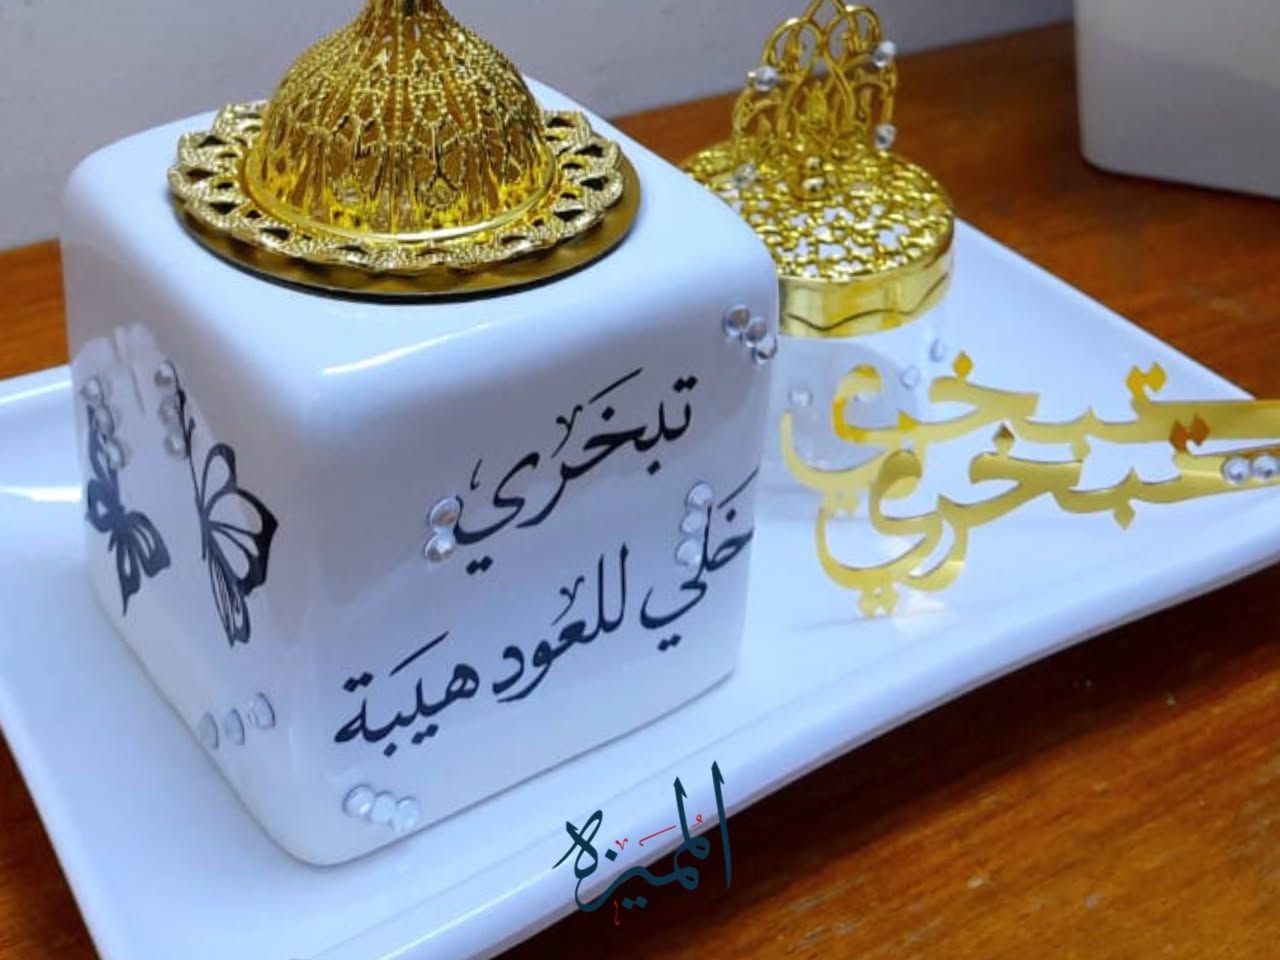 تبخري
خلي للعود هيبة
تبخري
تبخري
المميزه